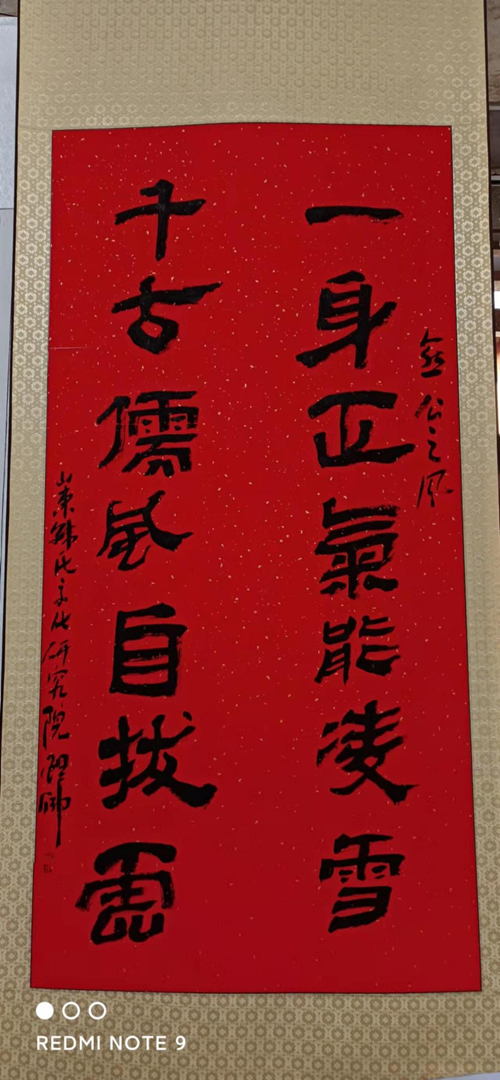 愈公之风
一身正氣能凌雪
千古儒風自拔
山東韩氏文化研究院
REDMI NOTE 9